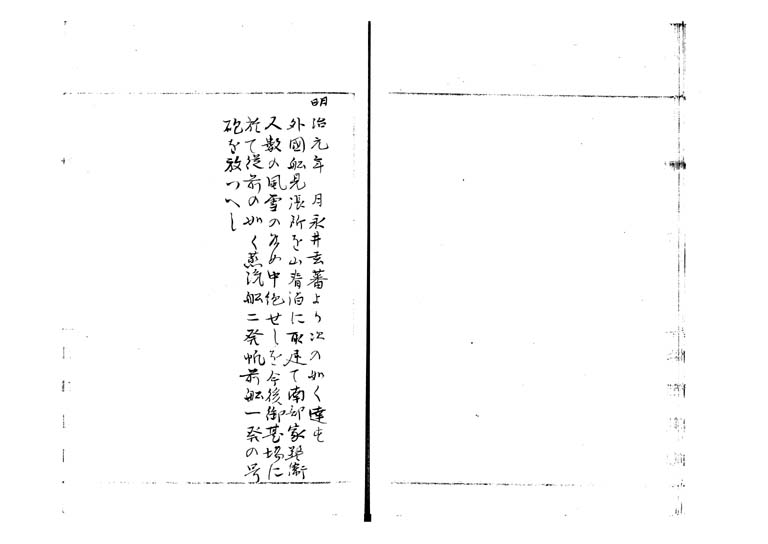 明治元年 月永井玄蕃より次の如く達せ
外國船見張所を山脊泊に取建て南部家警衛
人数の風雪のため中絶せしを今後御台場に
於て従前の如く蒸汽船二発帆前船一発の号
砲を放つへし